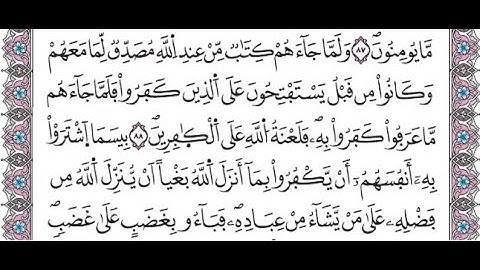 مَّا يُومِنُونَۖ ٨٧ وَلَمَّا جَآءَهُمْ كِتَٰبٞ مِّنْ عِندِ اِ۬للَّهِ مُصَدِّقٞ لِّمَا مَعَهُمْ
وَكَانُواْ مِن قَبْلُ يَسْتَفْتِحُونَ عَلَى اَ۬لذِينَ كَفَرُواْ فَلَمَّا جَآءَهُم
مَّا عَرَفُواْ كَفَرُواْ بِهِۦۖ فَلَعْنَةُ اُ۬للَّهِ عَلَى اَ۬لْكٰ۪فِرِينَۖ ٨٨ بِيسَمَا اَ۪شْتَرَوْاْ
بِهِۦٓ أَنفُسَهُمُۥٓ أَنْ يَّكْفُرُواْ بِمَآ أَنزَلَ اَ۬للَّهُ بَغْياً اَنْ يُّنَزِّلَ اَ۬للَّهُ مِن
فَضْلِهِۦ عَلَىٰ مَنْ يَّشَآءُ مِنْ عِبَادِهِۦۖ فَبَآءُو بِغَضَبٍ عَلَىٰ غَضَبٖۖ